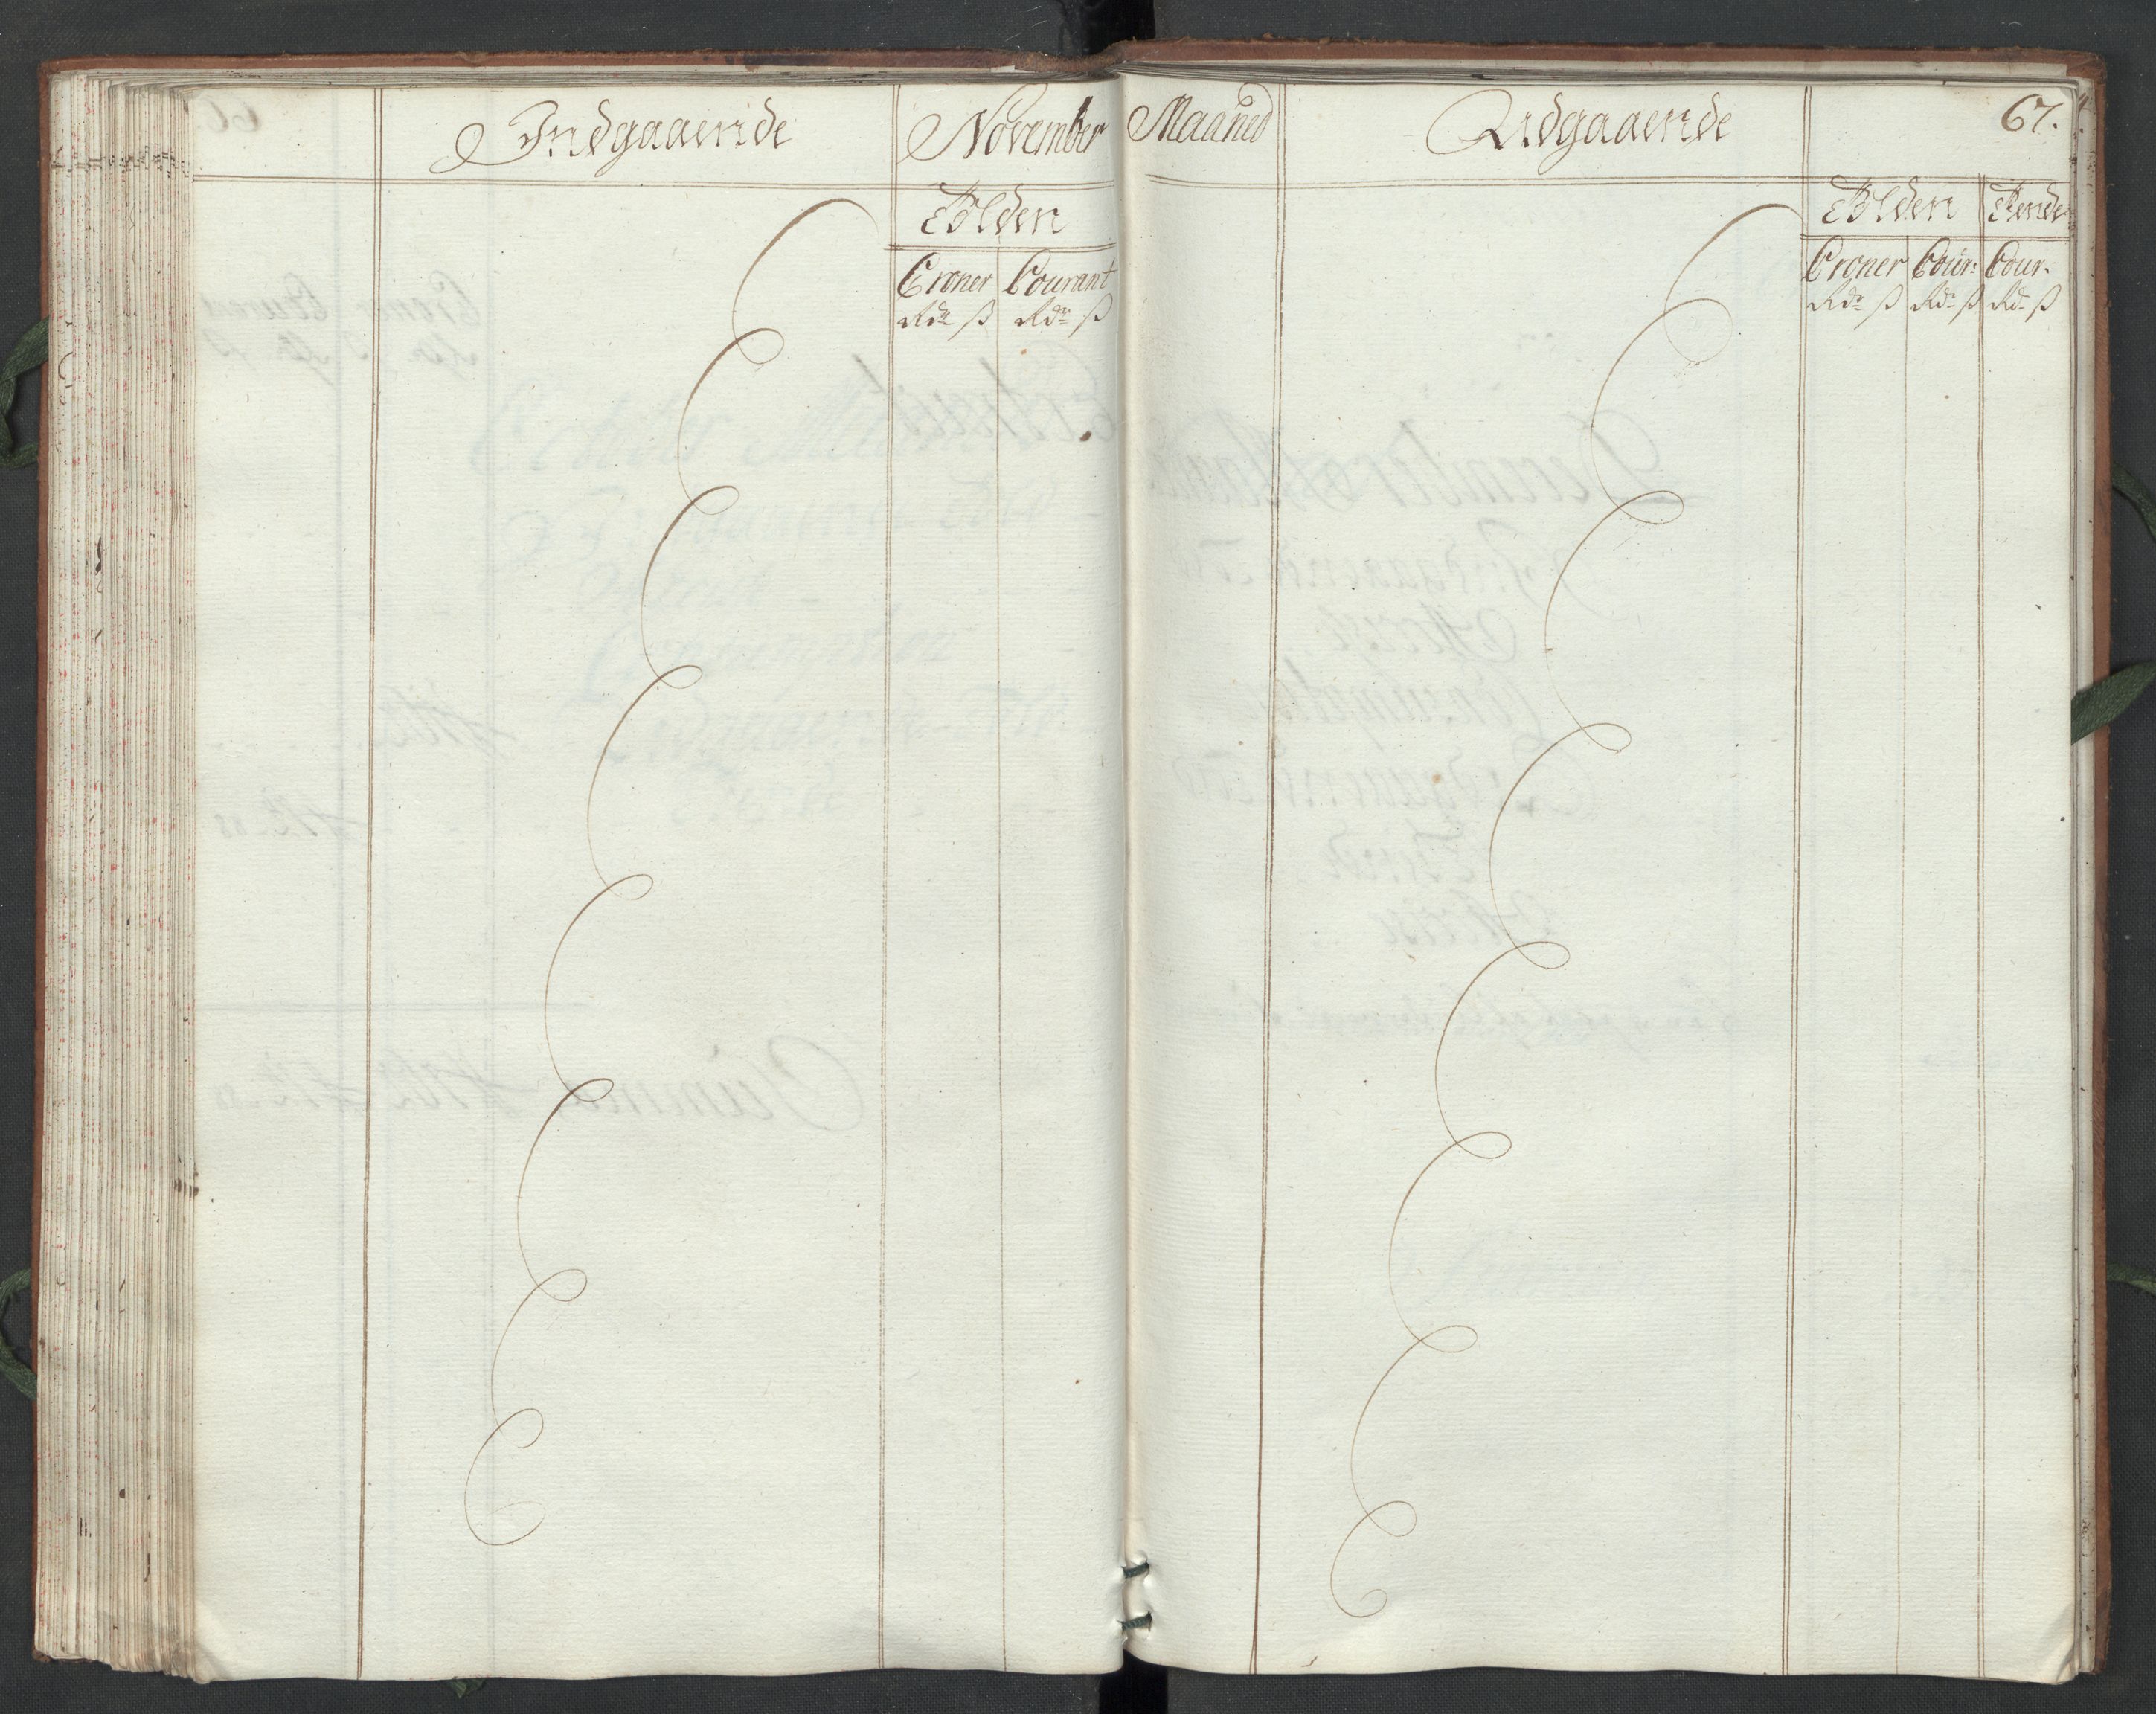 Indgaaende November
Tolden
Croner Courant
Rdr ß Rdr ß
Maaned Udgaaende 67.
Tolden Tiende
Croner Cour: Cour.
Rdr ß Rdr ß Rdr ß